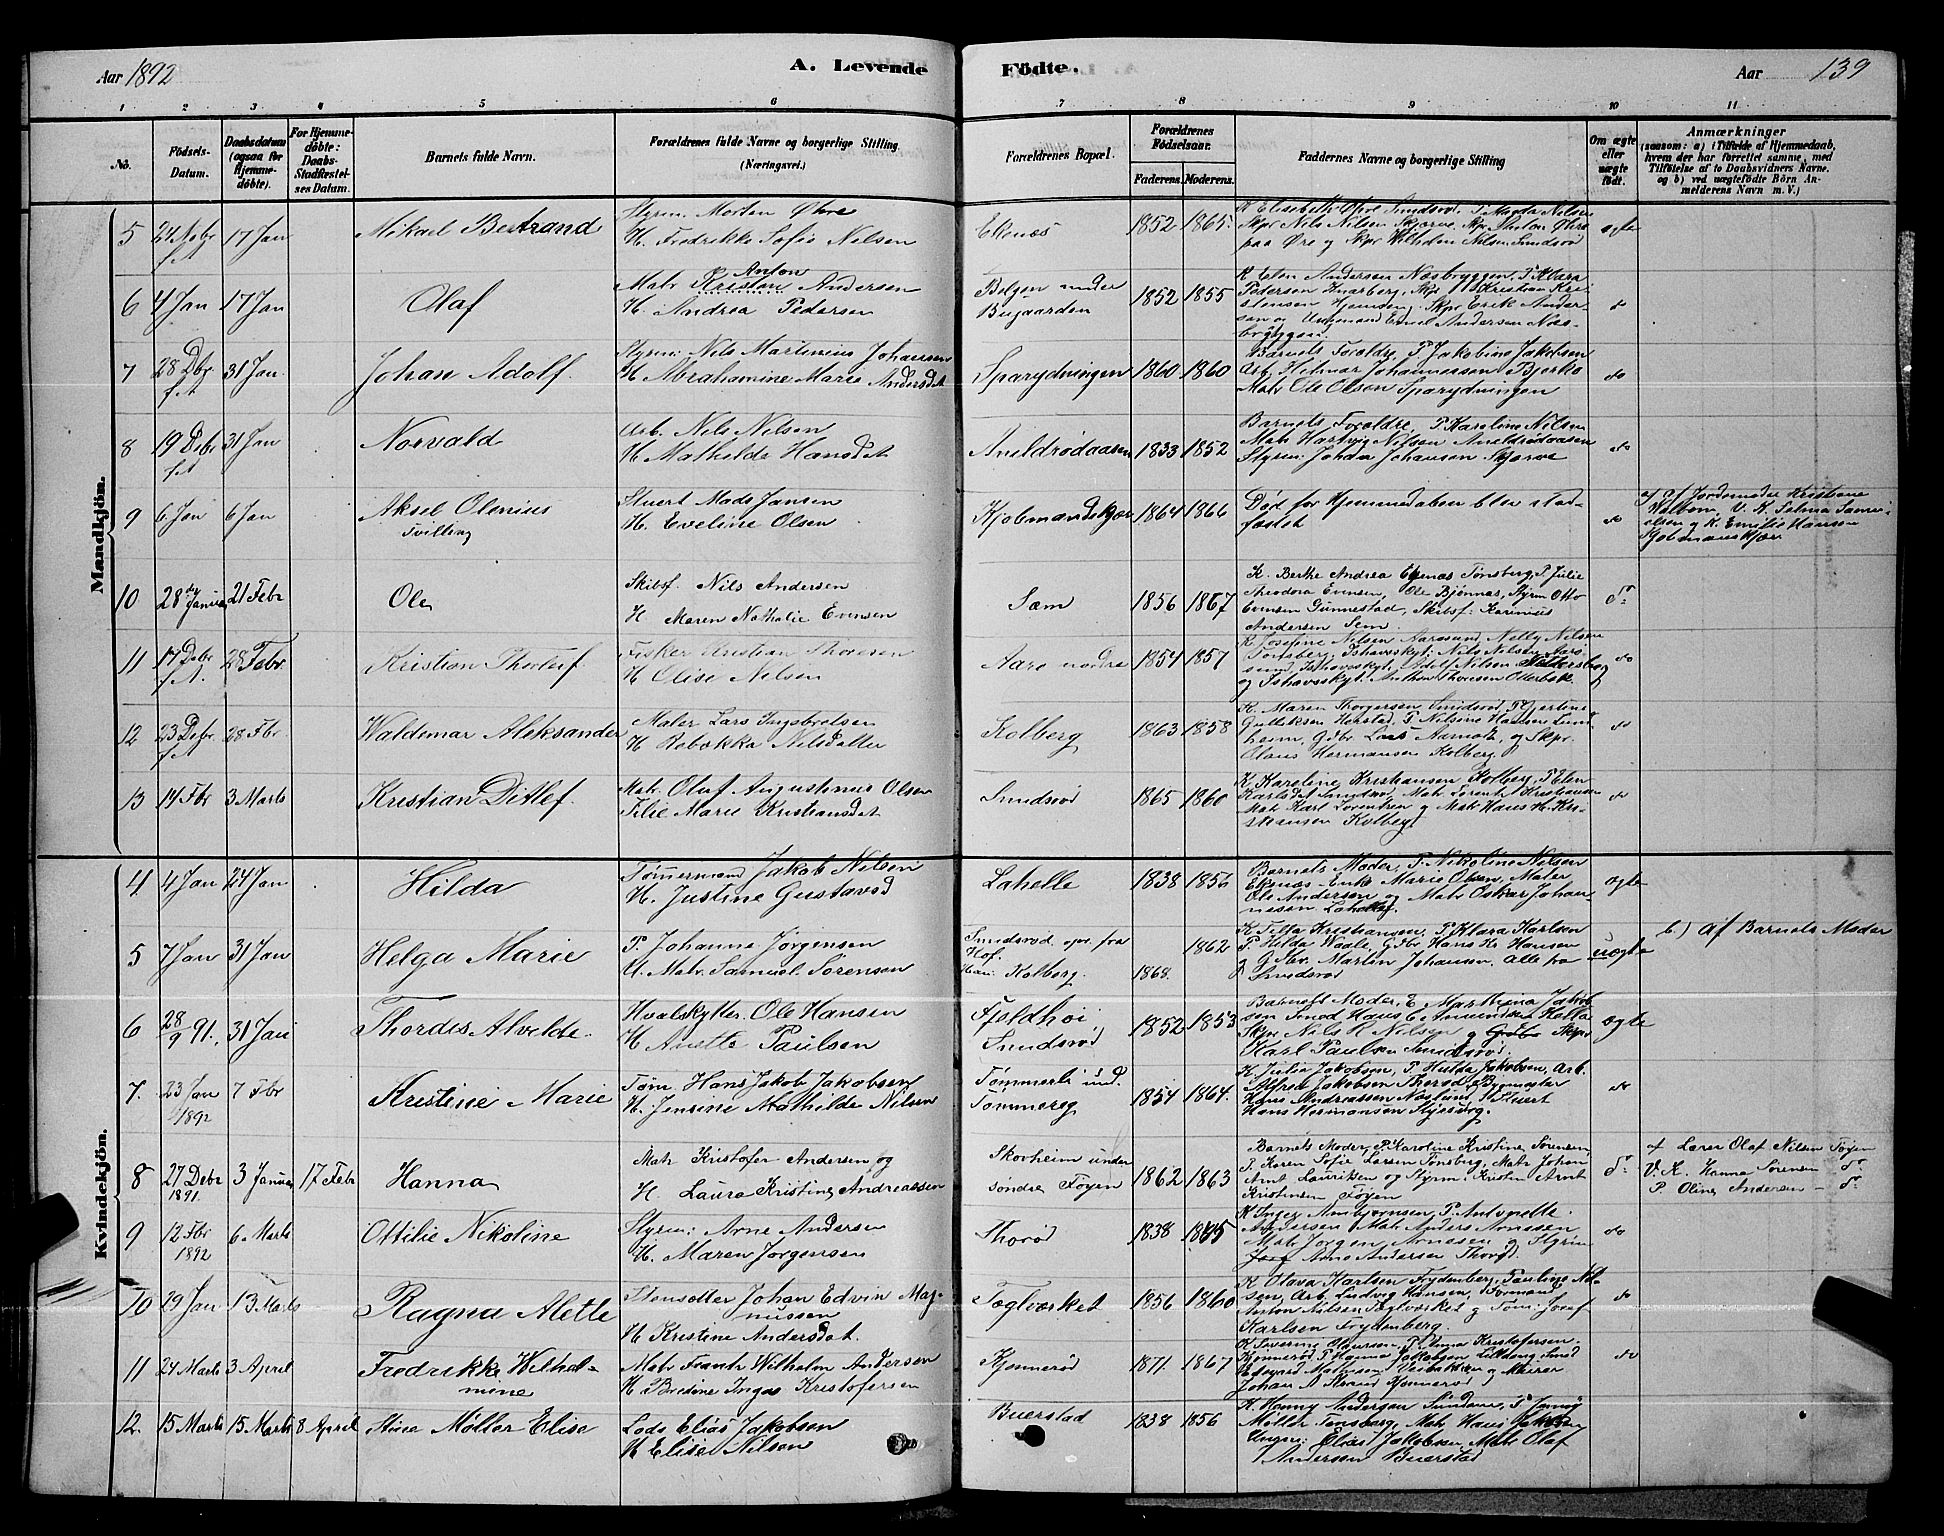 Aar 1892
A. Levende
Födte.
Aar
139
1 2 3 4 5 6 7 8 9 10 11
No.
Födsels-Datum.
Daabsdatum (ogsaa for Hjemmedöbte).
For Hjemmedöbte: Daabs-Stadfæstelses Datum.
Barnets fulde Navn.
Forældrenes fulde Navne og borgerlige Stilling (Næringsvei.)
Forældrenes Bopæl.
Forældrenes Födselsaar.
Faderens. Moderens.
Faddernes Navne og borgerlige Stilling
Om ægte eller uægte födt.
Anmærkninger
(saasom: a) i Tilfælde af Hjemmedaab, hvem der har forrettet samme, med Tilföielse af to Daabsvidners Navne. og b) ved uægtefödte Börn Anmelderens Navn m. V.)
Mandkjön.
5 24 Nobr f.A 17 Jan Mikael Bertrand
Styrm. Morten Øhre
H. Fredrikke Sofie Nelsen
Ekenæs 1852 1865.
K Elisabeth Øhre Smidsrød, P Marta Nilsen
Skpr Nils Nilsen Skjærve, Skpr Anton Øhre
paa Øre og Skpr Wilhelm Nilsen Smidsrød
ægte
6 4 Jan 17 Jan Olaf
Anton
Matr Kristen Andersen
H. Andrea Pedersen
Bolgen under
Bugaarden 1852 1855
K Elen Andersen Næsbryggen, P Klara
Pedersen Husberg, Skpr Kristian Kri-
stensen Hjemseng, Skpr Erik Ander-
sen og Ungmand Emil Andersen Næs-
bryggen
do
7 28 Dbr f.A 31 Jan Johan Adolf
Styrm: Nils Martinius Johansen
H Abrahamine Marie Andersdet
Sparydningen 1860 1860
Barnets Forældre, P Jakobine Jakobsen
Arb. Hilmar Johannessen Bjerke
Matr Ole Olsen Sparydningen
do
8 19 Debr f.A 31 Jan Norvald
Arb. Nils Nilsen
H Mathilde Hansdet
Aneldrødaasen 1833 1852
Barnets Forældre, P Karoline Nilsen
Matr Hartvig Nilsen Aneldrødaasen
Styrm: Johan Johansen Skjærve
do
9 6 Jan 6 Jan Aksel Olenius
Tvilling
Stuert Mads Jansen
H. Eveline Olsen
Kjøbmandskjær 1864 1866
Død før Hjemmedaben blev stad-
fæstet
do
a) af Jordemoder Kristiane
Walbom, V. K. Selma Samu-
elsen og K. Emilie Hansen
Kjøbmanskjær
10 28de Januar 21 Febr Ole
Skibsf. Nils Andersen
H Maren Nathalie Evensen
Sæm 1856 1867
K. Berthe Andrea Ekenæs Tønsberg, P. Julie
Theodora Evensen, Ole Bjønnes, Styrm Otto
Evensen Gunnestad, Skibsf: Karinius
Andersen Sem
do
11 17 Debr f.A. 28 Febr. Kristian Thorleif
Fisker Kristian Thoresen
H Elise Nelsen
Aarø nordre 1854 1857
K Josefine Nilsen Aarøsund, Nelly Nilsen
Tønsberg, Ishavsskyt: Nils Nilsen Aarø-
sund, Ishavsskyt: Adolf Nilsen
og Ishavsskyt: Anthon Thoresen Otterbæk
do
12 23 Debr. f.A 28 Fbr. Waldemar Aleksander
Maler Lars Ingebretsen
H Rebækka Nilsdatter
Kolberg 1863 1858
K. Maren Thorgersen Smidsrød, P Gjertine
Gulliksen Herstad, P Nilsine Hansen Lind-
heim, Gdbr Lars Aamot, og Skpr.
Olaus Hermansen Kolberg
do
13 14 Fbr 3 Marts Kristian Ditlef.
Matr. Oluf Augustinus Olsen
Tilie Marie Kristiansdet
Smidsrød 1865 1860
K Karoline Kristiansen Kolberg, P Elen
Karlsdet Smidsrød, Matr Lorents Kristiansen
Matr Karl Lorentsen og Matr Hans H. Kri-
stiansen Kolberg
do
Kvindekjön.
4 4 Jan 24 Jan Hilda
Tømermand Jakob Nilsen
H. Justine Gustavsd
Lahelle 1838 1856
Barnets Moder, P. Nikoline Nilsen
Ekenæs Enke Marie Olsen, Maler
Ole Andersen og Matr Oskar Johan-
nesen Lahelle.
ægte
5 7 Jan 31 Jan Helga Marie
P. Johanne Jørgensen
U. Matr. Samuel Sørensen
Smidsrød opr. fra
Hof.
Han: Kolberg. 1868. 1862
K Tilla Kristiansen, P. Klara Karlsen
P. Hilda Waale, Gdbr Hans H. Hansen
og Gbr. Martin Johansen. Alle fra
Smidsrød
uægte
b) af Barnets Moder
6 28/9 91. 31 Jan Thordis Alvilde.
Hvalskytter Ole Hansen
H Anette Paulsen
Fjeldhøi
Smidsrød 1852 1853
Barnets Moder, E Marthina Jakob-
sen Smed Hans E. Amundsen Holla
Skpr Nils R Nilsen og Skpr
Karl Paulsen Smidsrød.
ægte
7. 23 Jan 1892 7 Fbr Kristine Marie
Tøm. Hans Jakob Jakobsen
H. Jensine Mathilde Nilsen
Tømmerli und.
Tømmereg 1854 1864.
K. Julia Jakobsen, P. Hilda Jakobsen, Arb.
Alfred Jakobsen Thorød, Bygmester
Hans Andreassen Næslund, Stuert
Hans Hermansen Stjesørg.
do
8 27 Debr 1891. 3 Januar 17 Febr Hanna
Matr Kristofer Andersen og
H. Laura Kristine Andreassen
Skovheim under
søndre Føyen 1862 1863
Barnets Moder, P Karoline Kristine Sørensen,
P. Karen Sofie Larsen Tønsberg, Matr Johan
Arnt Lauriksen og Styrm: Kristen Arnt
Kristensen Føyen
do
af Lærer Olaf Nilsen Føyen
V. K. Hanna Sørensen do
P. Oline Andersen — do
9 12 Fbr 1892 6 Marts Ottilie Nikoline
Styrm: Arne Andersen
H. Maren Jørgensen
Thorød 1838 1845
K Inger Ambjørnsen, P. Antonette
Andersen Matr Anders Arnesen
Matr Jørgen Arnesen og Styrm
Arne Andersen Thorød
do
10 29 Jan 13 Marts Ragna Alette
Stensætter Johan Edvin Mag-
nussen
H Kristine Andersdat.
Teglværket 1856 1860
K Olava Karlsen Frydenberg, Pauline Nil-
sen, Arb. Ludvig Hansen, Formand
Anton Nilsen Teglværket og Tøm: Josef
Karlsen Frydenberg.
do
11 24 Marts 3 April Fredrikke Wilhel-
mine
Matr Frants Wilhelm Andersen
H Bredine Inga Kristofersen
Kjønnerød 1871 1867
K Severine Andersen, P Anna Kristofersen.
Kjønnerød, P Hanna Jakobsen Lilleeng, Smed
Edvard Mathisen og Murer
Johan A Kjønnerød
do
12. 15 Marts 15 Marts 8 April Stine Møller Elise
Lods Elias Jakobsen
H Elise Nilsen
Buerstad 1838 1856
K. Honny Andersen Sundene, P. Jenny
Møller Tønsberg, Matr Hans Jakobsen
Ungm: Elias Jakobsen, Matr Olaf
Andersen Buerstad